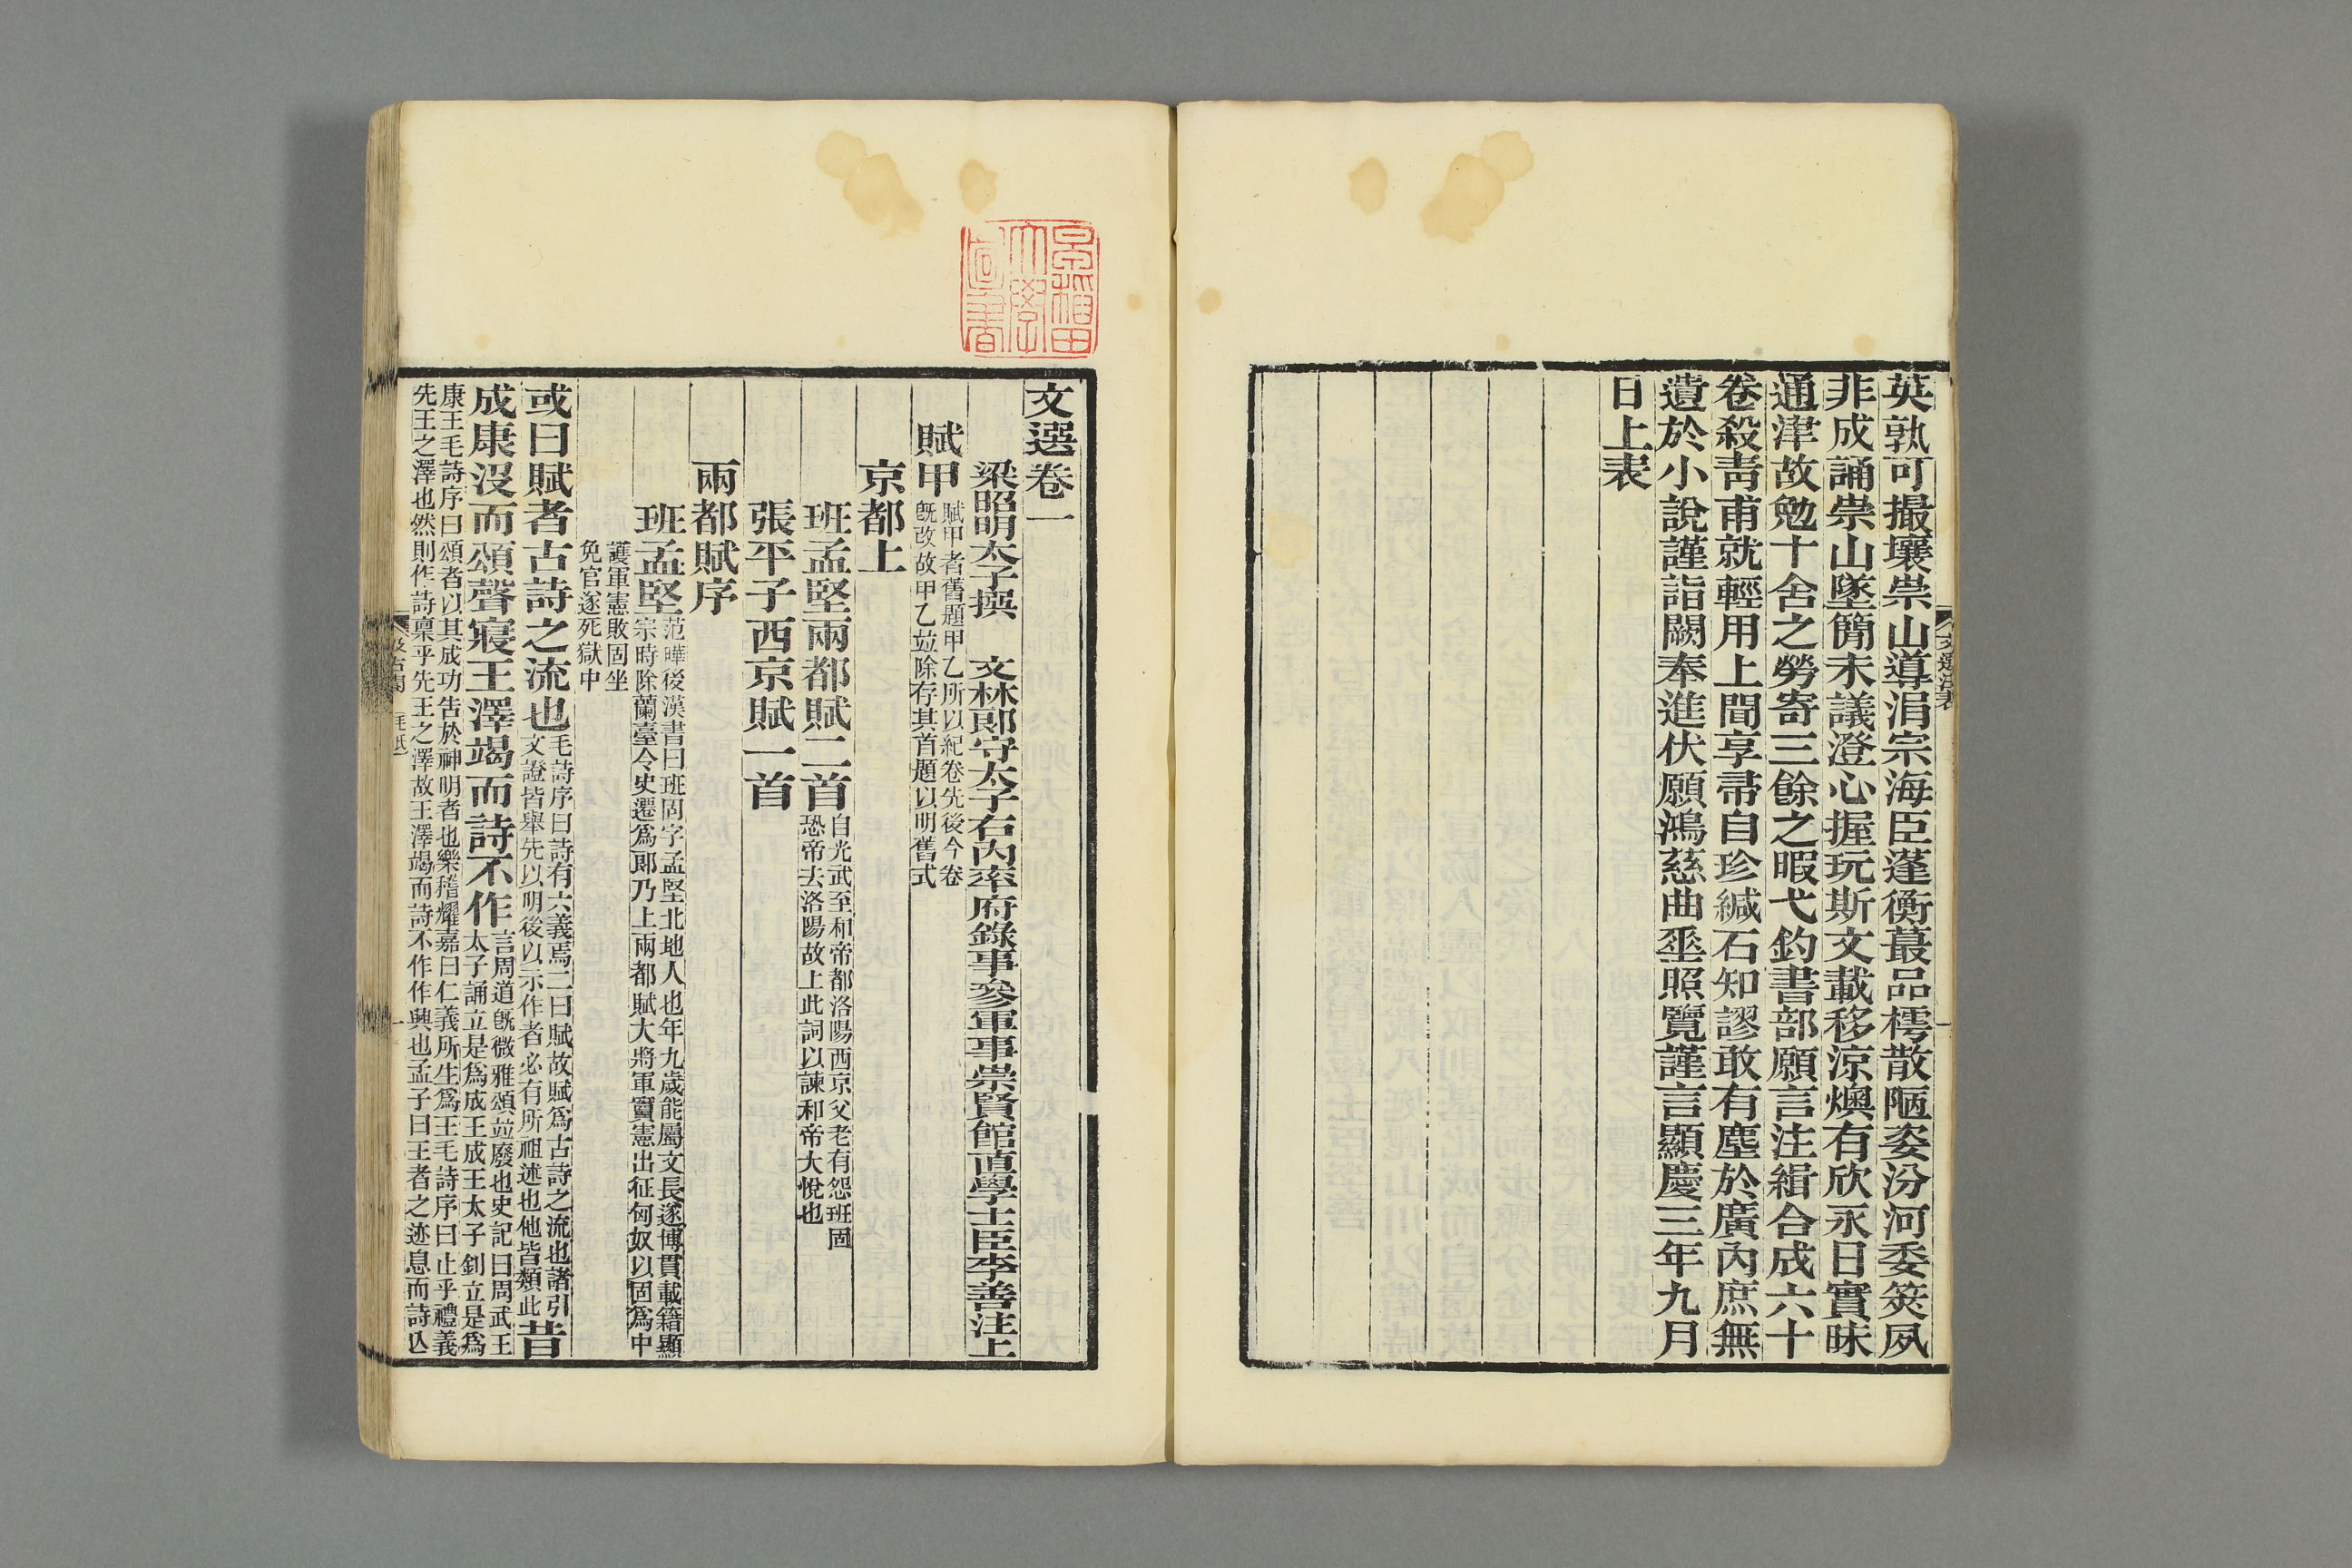 英孰可撮壤崇山導涓宗海臣蓬衡蕞品樗散陋姿汾河委筴夙
非成誦崇山墜簡未議澄心握玩斯文載移涼燠有欣永日實昧
通津故勉十舍之勞寄三餘之暇弋釣書部願言注緝合成六十
卷殺青甫就輕用上聞享帚自珍緘石知謬敢有塵於廣內庶無
遺於小說謹詣闕奉進伏願鴻慈曲垂照覽謹言顯慶三年九月
日上表
文選卷一
梁昭明太子撰 文林郎守太子右內率府錄事參軍事崇賢館直學士臣李善注上
賦甲
賦甲者舊題甲乙所以紀卷先後今卷
旣改故甲乙竝除存其首題以明舊式
京都上
班孟堅兩都賦二首
自光武至和帝都洛陽西京父老有怨班固
恐帝去洛陽故上此詞以諫和帝大悅也
張平子西京賦一首
兩都賦序
班孟堅
范曄後漢書曰班固字孟堅北地人也年九歲能屬文長遂博貫載籍顯
宗時除蘭臺令史遷爲郎乃上兩都賦大將軍竇憲出征匈奴以固爲中
護軍憲敗固坐
免官遂死獄中
或曰賦者古詩之流也
毛詩序曰詩有六義焉二曰賦故賦爲古詩之流也諸引
文證皆舉先以明後以示作者必有所祖述也他皆類此
昔
成康沒而頌聲寢王澤竭而詩不作
言周道旣微雅頌竝廢也史記曰周武王
太子誦立是爲成王成王太子釗立是爲
康王毛詩序曰頌者以其成功告於神明者也樂稽耀嘉曰仁義所生爲王毛詩序曰止乎禮義
先王之澤也然則作詩稟乎先王之澤故王澤竭而詩不作作興也孟子曰王者之迹息而詩亾
文選注表
一
早稻田
大學
圖書